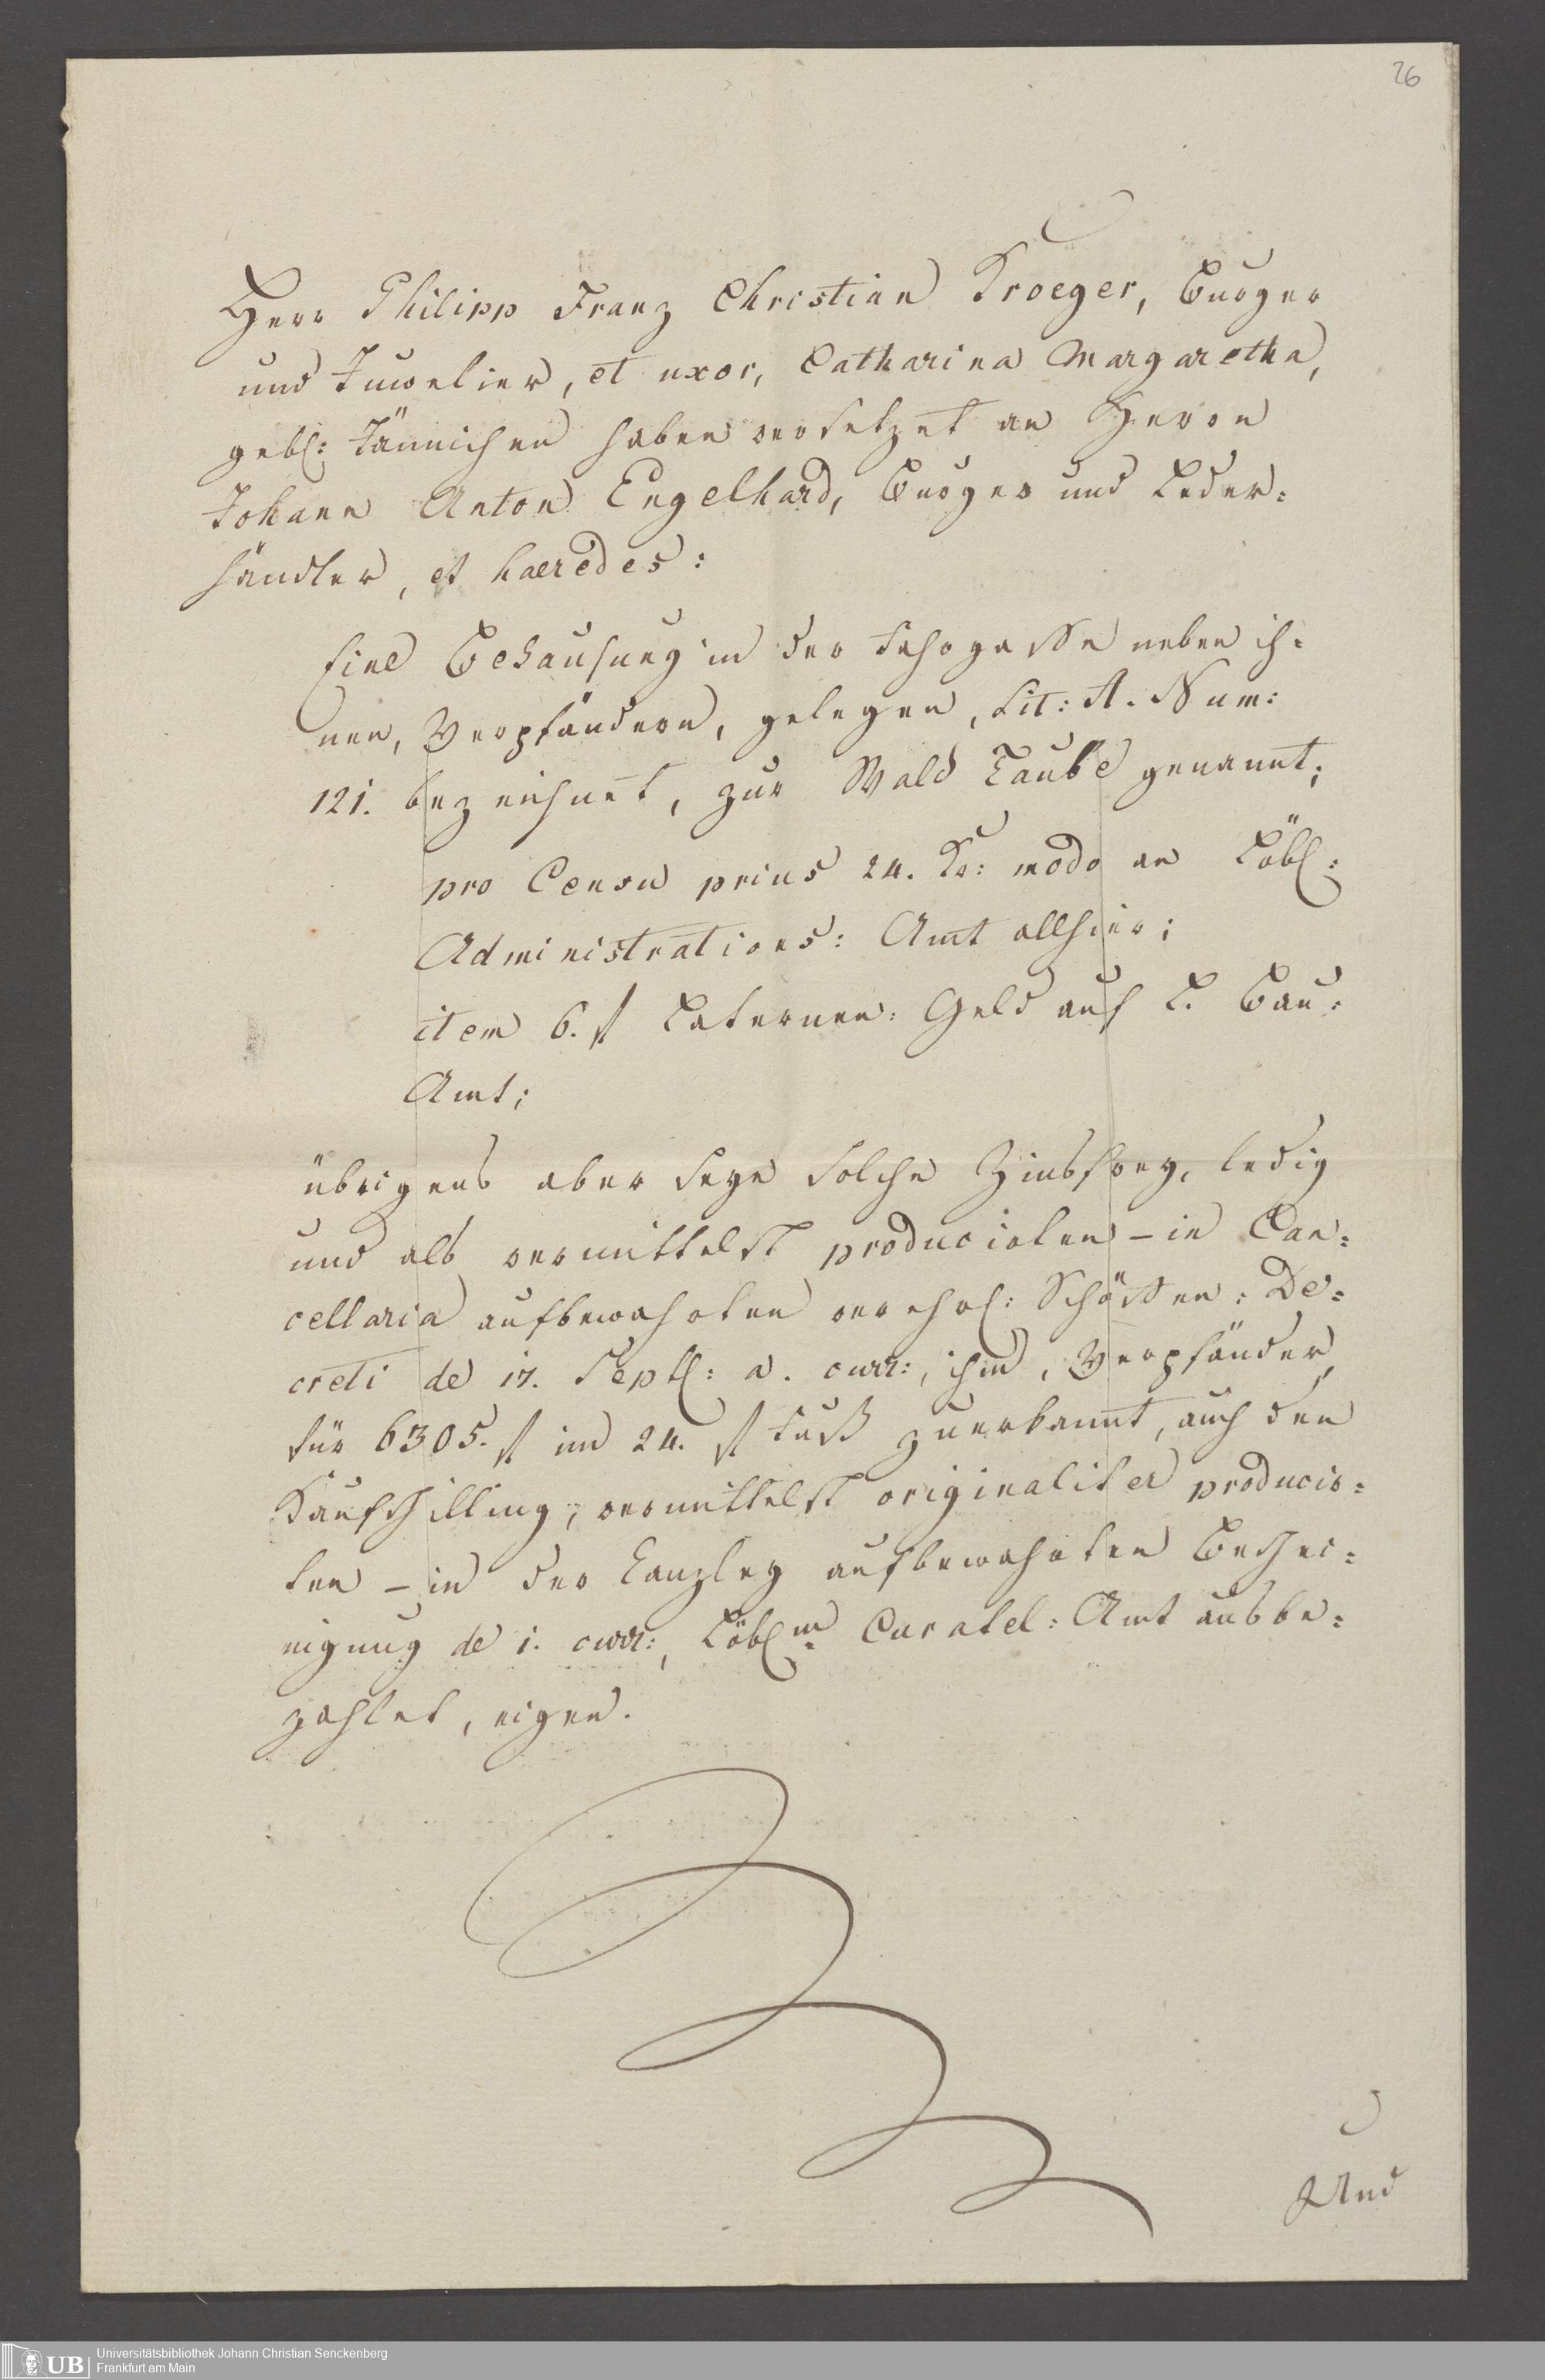 26
Herr Philipp Franz Christian Kroeger, Burger
und Juwelier, et uxor, Catharina Margaretha,
gebl: Jännichen haben versetzet an Herrn
Johann Anton Engelhard, Burger und Leder=
händler, et haeredes:
Eine Behausung in der Fahrgasse neben ih=
nen, Verpfändern, gelegen, Lit: A. Num:
121. bezeichnet, zur Wald Taube genannt;
pro Censu prius 24. Kr: modo an Löbl:
Administrations: Amt allhier;
item 6. fl Laternen: Geld auf L. Bau=
Amt;
übrigens aber seye solche Zinsfrey, ledig
und als vermittelst producirten - in Can=
cellaria aufbewahrten verehrl: Schöffen: De=
creti de 17. Septl: a. curr:, ihm, Verpfänder,
für 6305. fl im 24. fl Fuß zuerkannt, auch den
Kaufschilling, vermittelst originaliter producir=
ten - in der Canzley aufbewahrten Beschei=
nigung de 1. curr:, Löbl:m Curatel: Amt ausbe=
zahlet, eigen.
Und
UB
Universitätsbibliothek Johann Christian Senckenberg
Frankfurt am Main